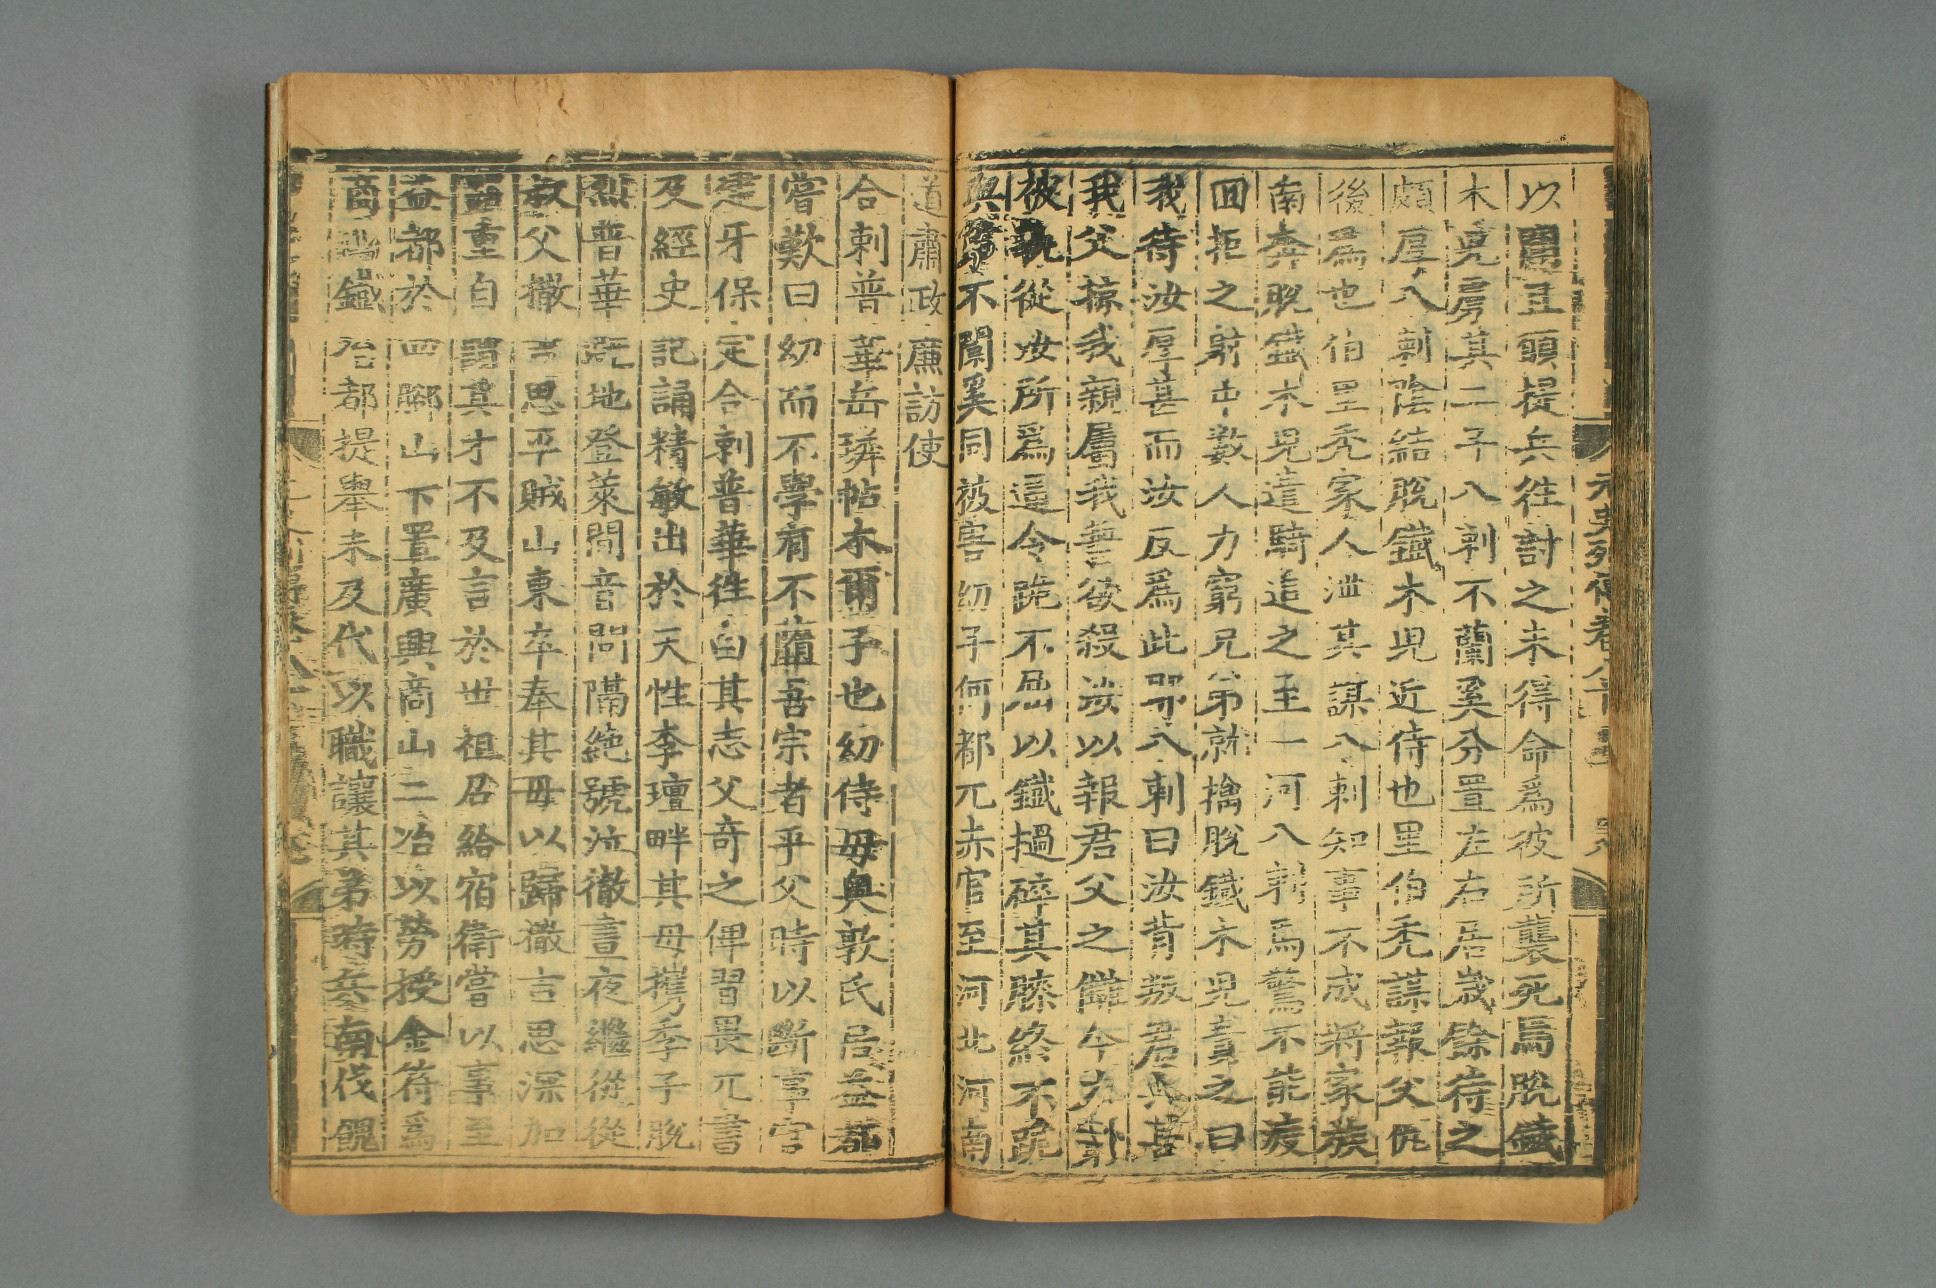 元史列傳卷八
以國王頭提兵往討之未得命爲彼所襲死焉脫鐵
木兒虜其二子八剌不蘭奚分置左右居歲餘待之
頗厚八剌陰結脫鐵木兒近侍也里伯禿謀報父仇
後爲也伯里禿家人泄其謀八剌知事不成將家族
南奔脫鐵木兒遣騎追之至一河八剌馬驚不能度
回拒之射中數人力窮兄弟就擒脫鐵木兒責之曰
我待汝厚甚而汝反爲此耶八剌曰汝背叛君與害
我父掠我親屬我誓欲殺汝以報君父之讎今力窮
被執從汝所爲逼令跪不屈以鐵撾碎其膝終不跪
與不闌奚同被害幼子何都兀赤官至河北河南
道肅政廉訪使
合剌普華岳璘帖木爾子也幼侍母奧敦氏居益都
嘗歎曰幼而不學有不墮吾宗者乎父時以斷事官
建牙保定合剌普華往白其志父奇之俾習畏兀書
及經史記誦精敏出於天性李璮畔其母攜季子脫
烈普華避地登萊間音問隔絶號泣徹晝夜繼從從
叔父撒吉思平賊山東卒奉其母以歸撒吉思深加
器重自謂其才不及言於世祖召給宿衛嘗以事至
益都於四腳山下置廣興商山二冶以勞授金符爲
商山鐵冶都提舉未及代以職讓其弟時兵南伐餽